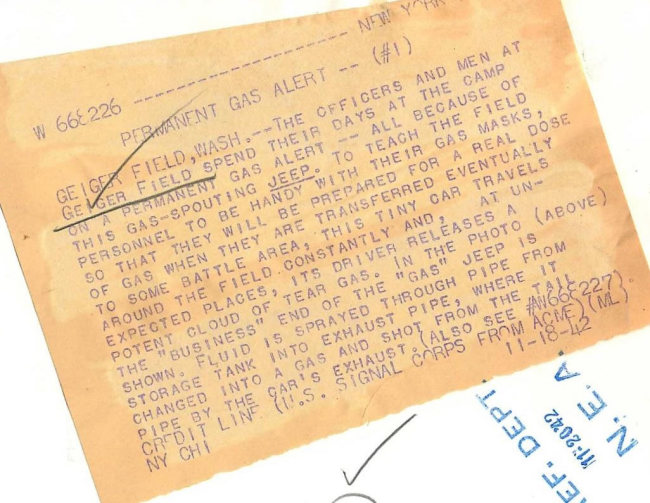 NEW YORK
W 668226 --------------------
PERMANENT GAS ALERT -- (#1)
GEIGER FIELD, WASH.--THE OFFICERS AND MEN AT
GEIGER FIELD SPEND THEIR DAYS AT THE CAMP
ON A PERMANENT GAS ALERT -- ALL BECAUSE OF
THIS GAS-SPOUTING JEEP. TO TEACH THE FIELD
PERSONNEL TO BE HANDY WITH THEIR GAS MASKS,
SO THAT THEY WILL BE PREPARED FOR A REAL DOSE
OF GAS WHEN THEY ARE TRANSFERRED EVENTUALLY
TO SOME BATTLE AREA, THIS TINY CAR TRAVELS
AROUND THE FIELD CONSTANTLY AND, AT UN-
EXPECTED PLACES, ITS DRIVER RELEASES A
POTENT CLOUD OF TEAR GAS. IN THE PHOTO (ABOVE)
THE "BUSINESS" END OF THE "GAS" JEEP IS
SHOWN. FLUID IS SPRAYED THROUGH PIPE FROM
STORAGE TANK INTO EXHAUST PIPE, WHERE IT
CHANGED INTO A GAS AND SHOT FROM THE TAIL
PIPE BY THE CAR'S EXHAUST. (ALSO SEE #W668227).
CREDIT LINE (U.S. SIGNAL CORPS FROM ACME) (ML).
NY CHI 11-18-42
REF. DEPT.
11-20-42
N. E. A.